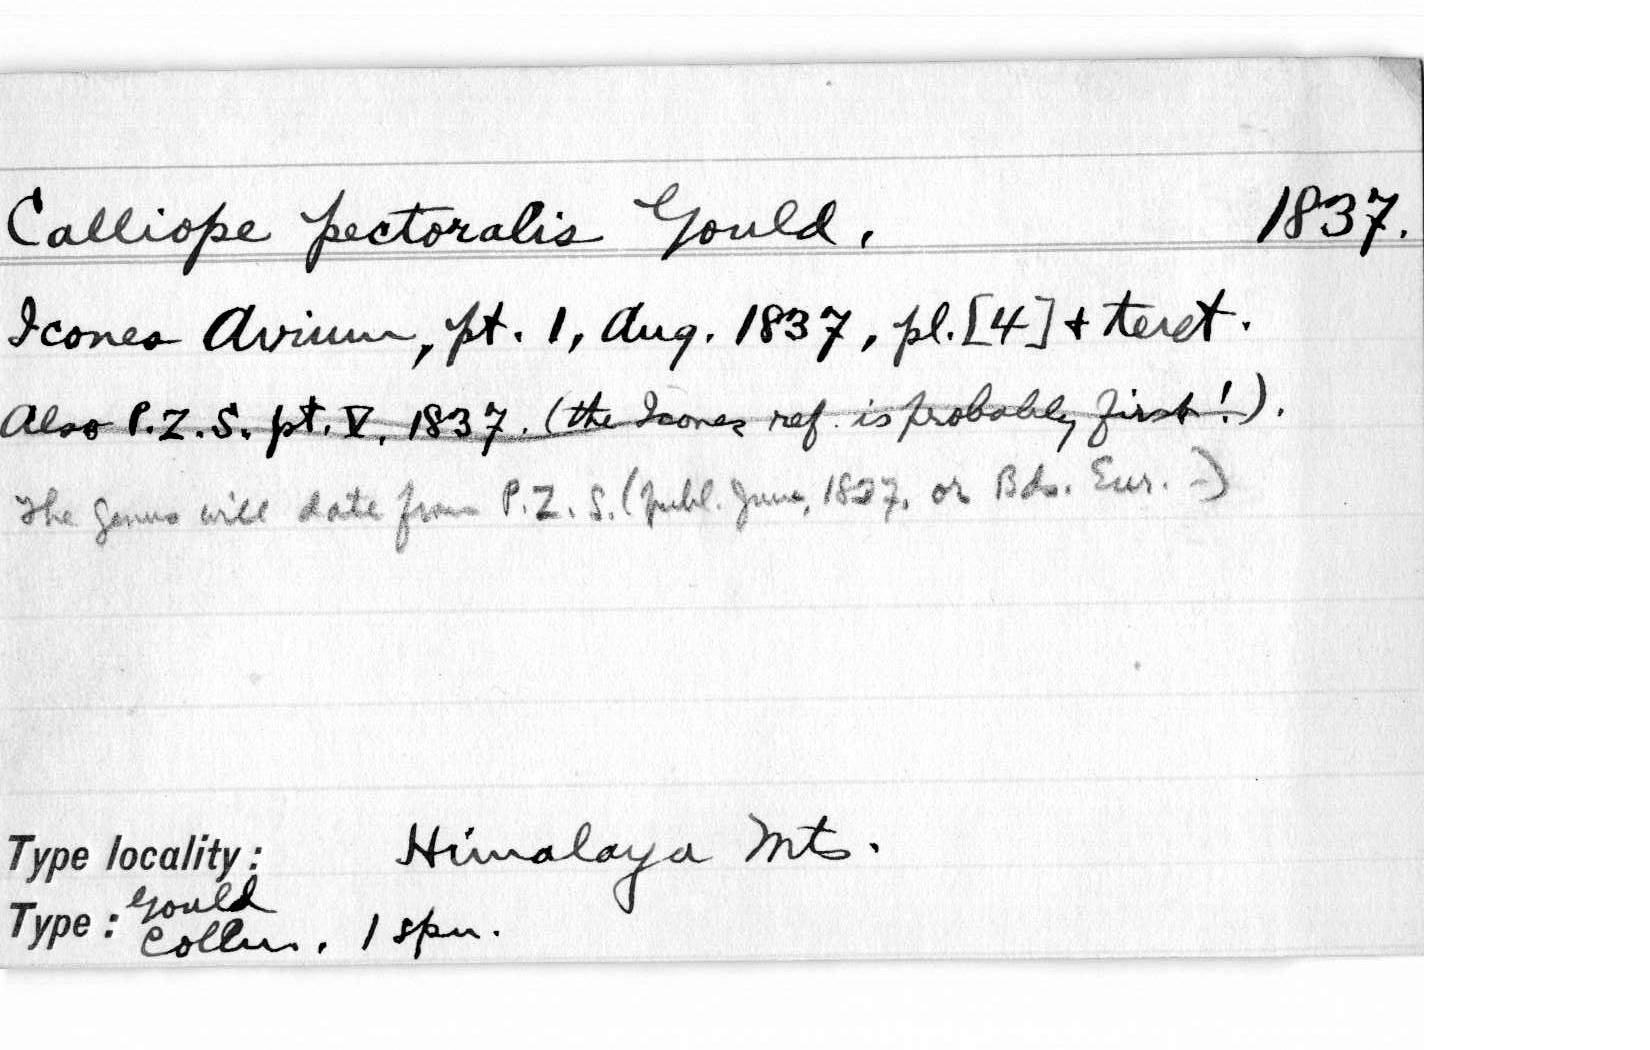 Calliope pectoralis Gould, 1837.
Icones Avium, pt. 1, Aug. 1837, pl. [4] + text.
Also P.Z.S. pt. V, 1837. (the Icones ref. is probably first!).
The genus will date from P.Z.S. (publ. June, 1837, or Bds. Eur. -)
Type locality: Himalaya Mts.
Type: Gould
Colln., 1 spn.